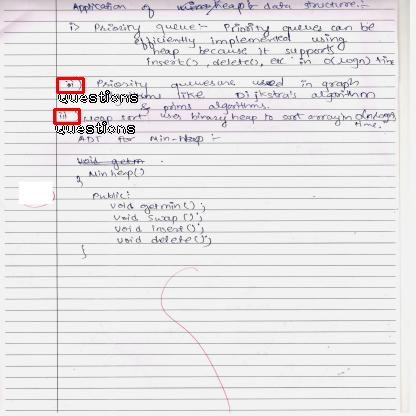 Application of binary heap data structure:-
i) Priority queue:- Priority queues can be
efficiently implemented using
heap because it supports
insert(), delete(), etc in O(logn) time
Priority queues are used in graph
Questions
like Dijkstra's algorithm
& prims algorithms.
ii) Heap sort uses binary heap to sort array in O(nlogn)
time.
Questions
ADT for Min-Heap :-
void getm
{ Minheap()
Public:
void getmin();
void swap();
void insert();
void delete();
}